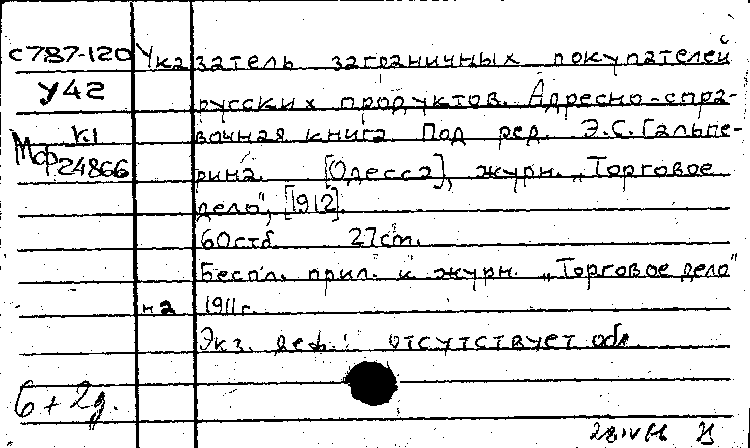 С787-120
У42
К1
Мф 24866
Указатель заграничных покупателей
русских продуктов. Адресно-спра-
вочная книга. Под ред. Э.С. Гальпе-
рина. [Одесса], журн. „Торговое
дело", [1912].
60стб. 27см.
Беспл. прил. к журн. „Торговое дело"
на 1911г.
Экз. деф.: отсутствует обл.
6+2д.